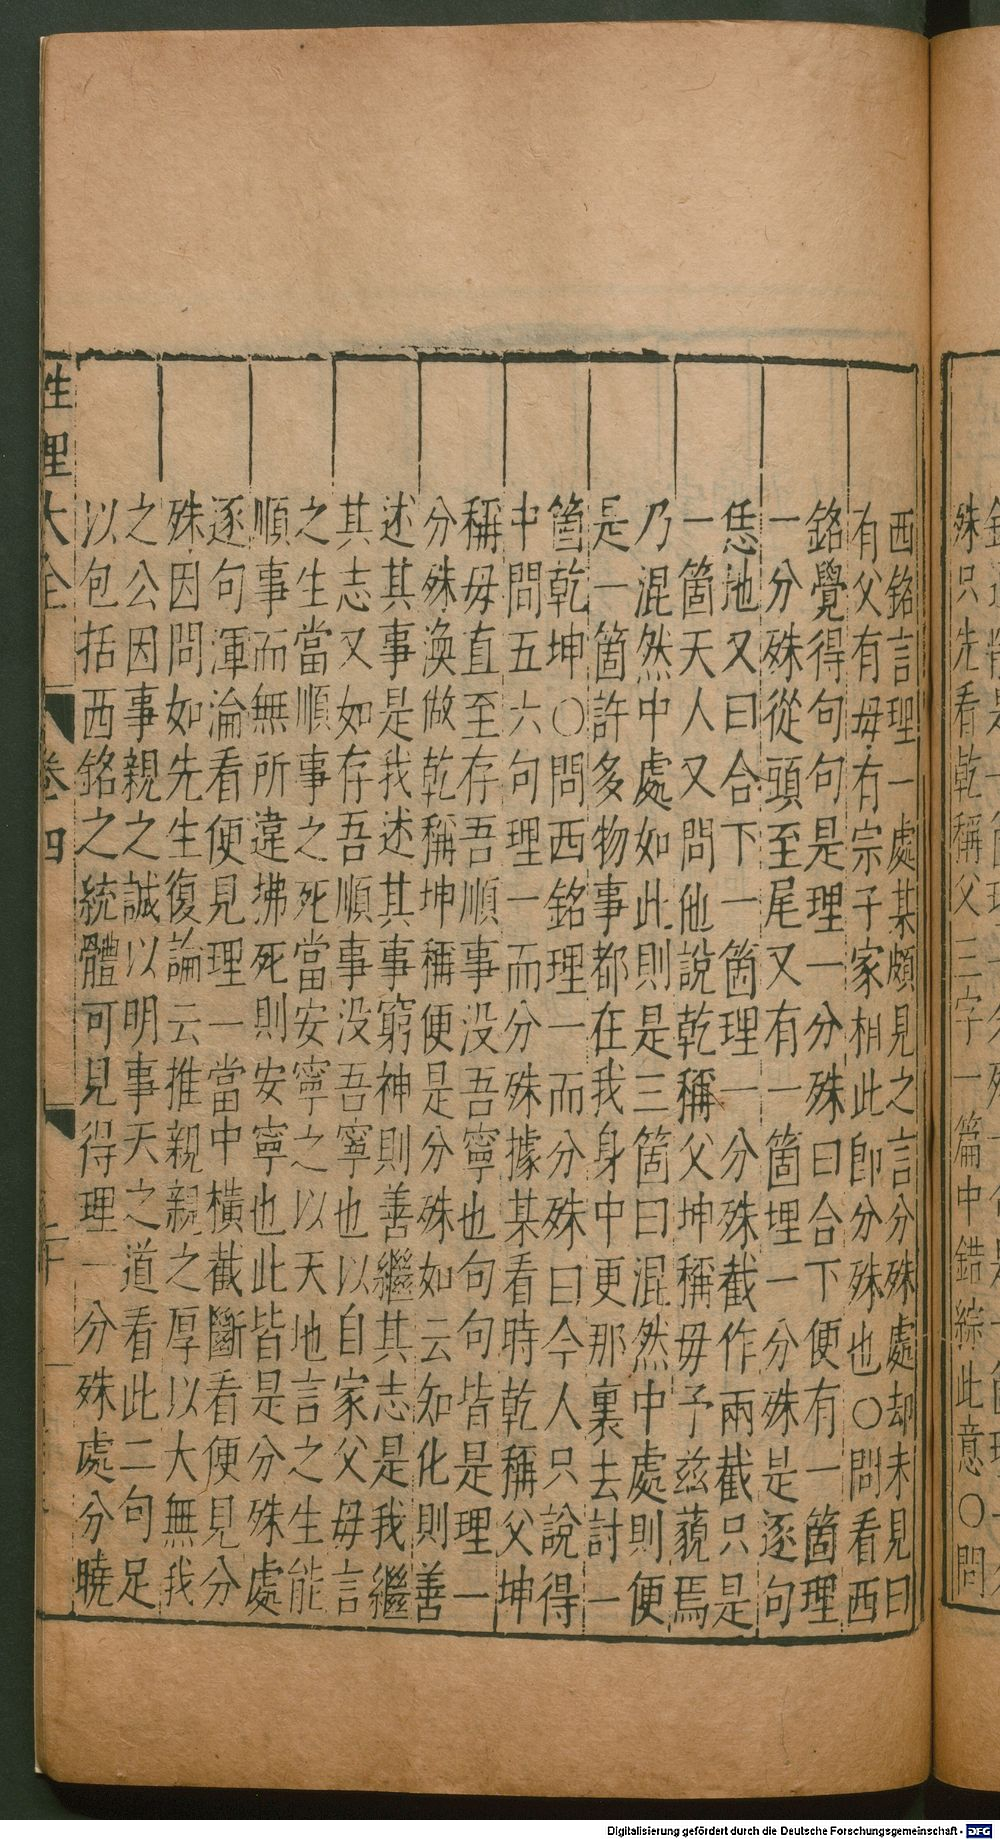 殊只先看乾稱父三字一篇中錯綜此意〇問
西銘言理一處某頗見之言分殊處却未見曰
有父有母有宗子家相此卽分殊也〇問看西
銘覺得句句是理一分殊曰合下便有一箇理
一分殊從頭至尾又有一箇理一分殊是逐句
恁地又曰合下一箇理一分殊截作兩截只是
一箇天人又問他說乾稱父坤稱母予兹藐焉
乃混然中處如此則是三箇曰混然中處則便
是一箇許多物事都在我身中更那裏去討一
箇乾坤〇問西銘理一而分殊曰今人只說得
中間五六句理一而分殊據某看時乾稱父坤
稱母直至存吾順事没吾寧也句句皆是理一
分殊渙做乾稱坤稱便是分殊如云知化則善
述其事是我述其事窮神則善繼其志是我繼
其志又如存吾順事没吾寧也以自家父母言
之生當順事之死當安寧之以天地言之生能
順事而無所違拂死則安寧也此皆是分殊處
逐句渾淪看便見理一當中橫截斷看便見分
殊因問如先生復論云推親親之厚以大無我
之公因事親之誠以明事天之道看此二句足
以包括西銘之統體可見得理一分殊處分曉
性理大全 卷四
Digitalisierung gefördert durch die Deutsche Forschungsgemeinschaft - DFG